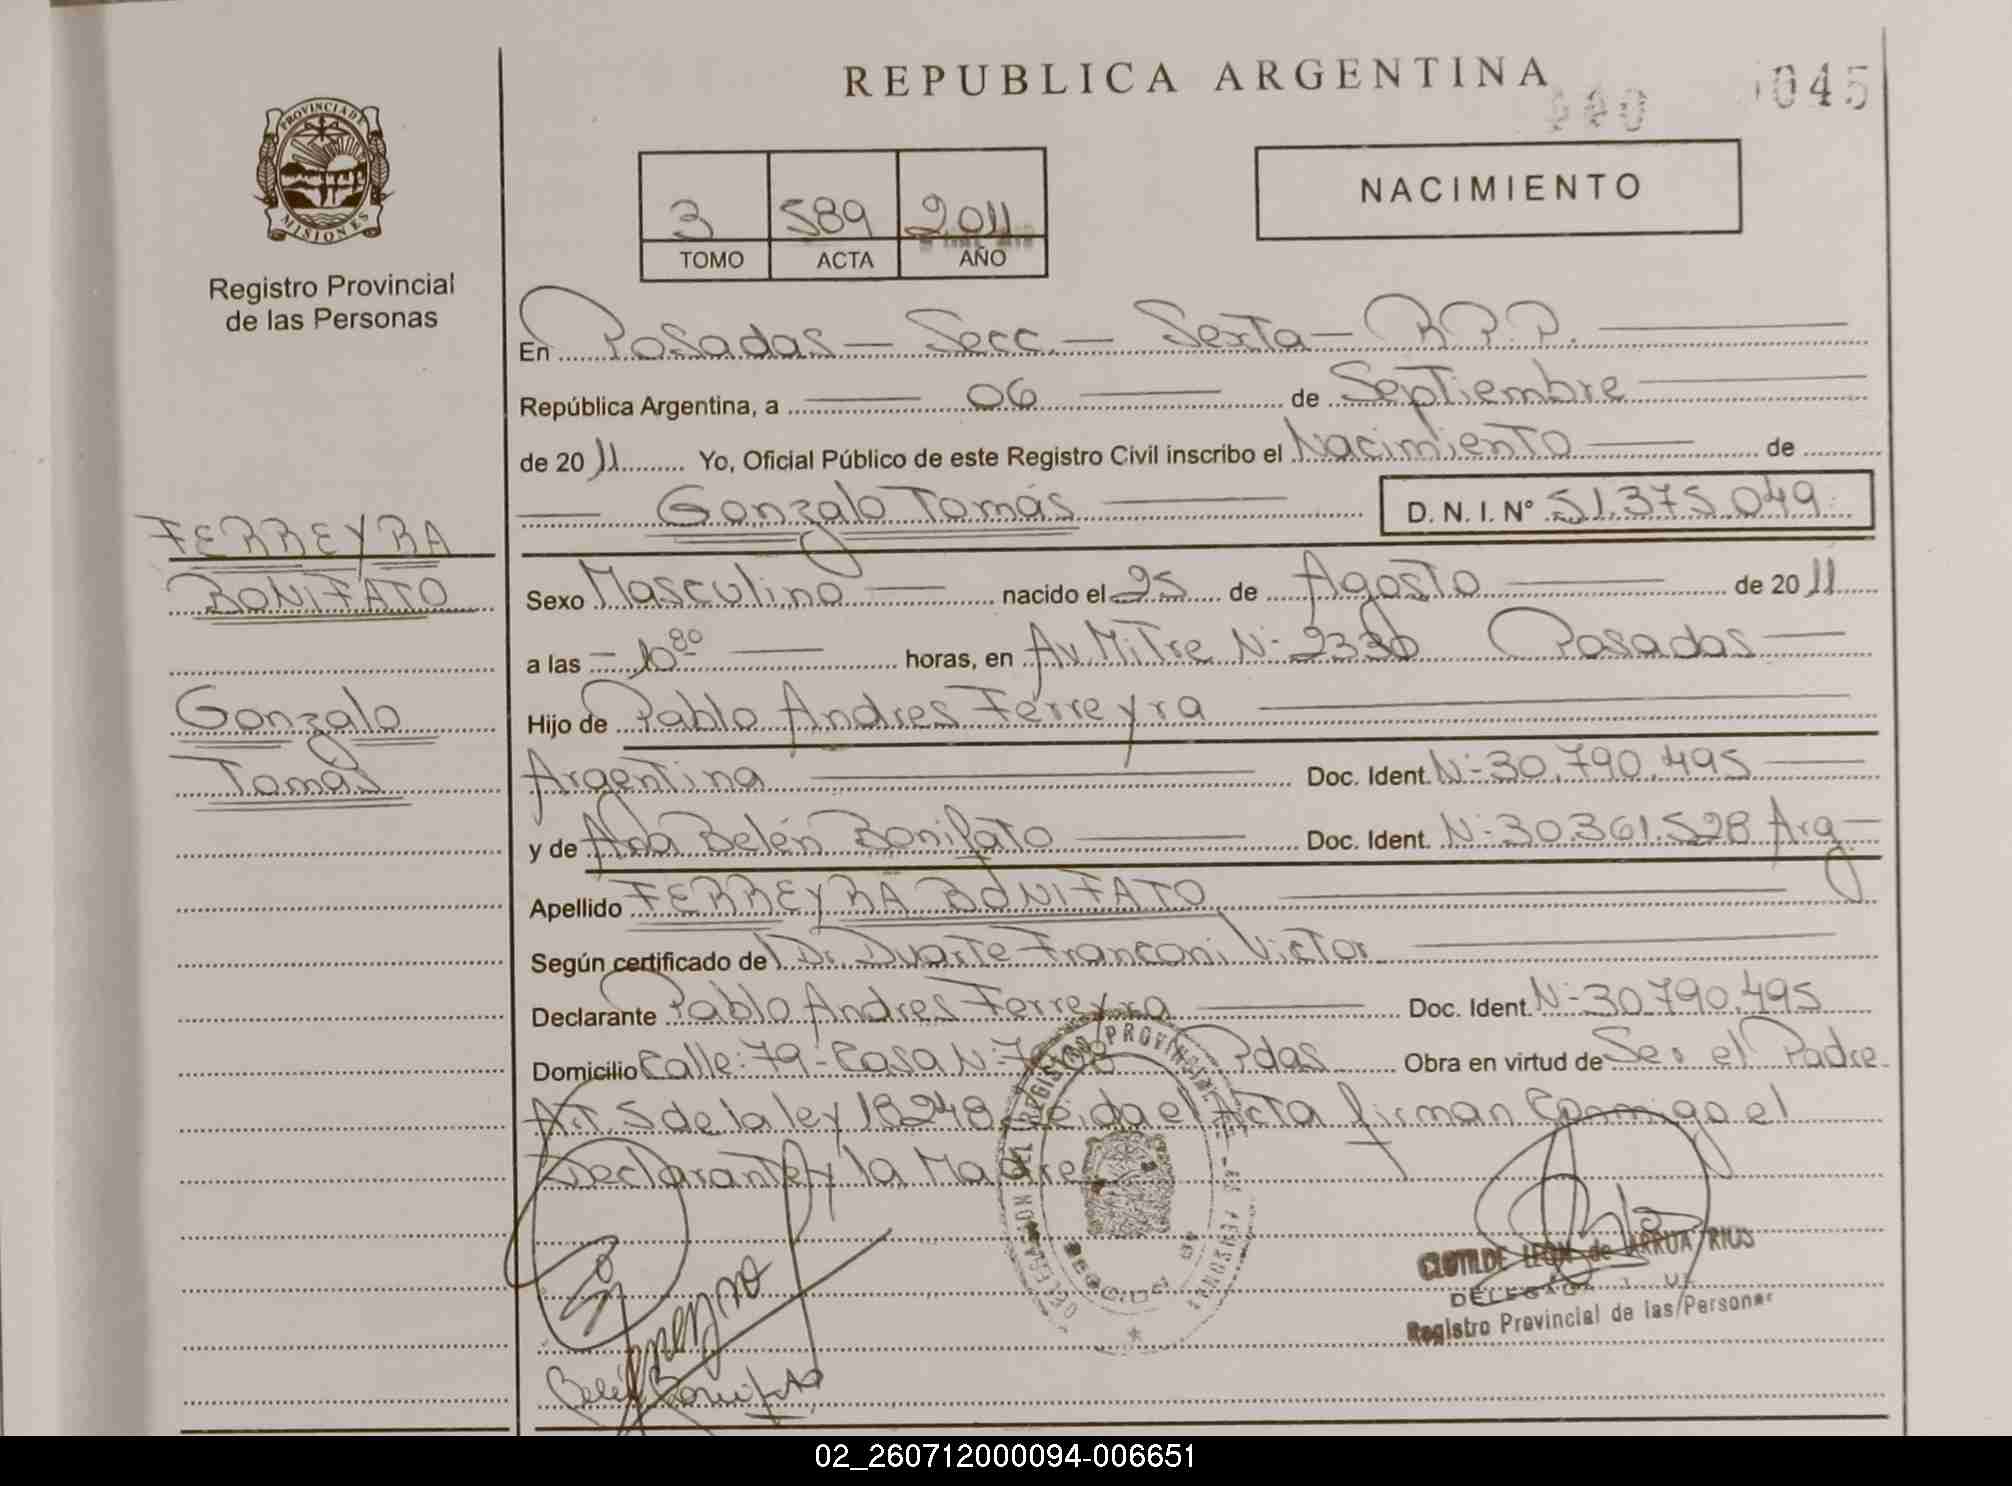 REPUBLICA ARGENTINA
045
PROVINCIA DE
MISIONES
Registro Provincial
de las Personas
3 589 2011
TOMO ACTA AÑO
NACIMIENTO
En Posadas - Secc. - Sexta - R.P.P.
República Argentina, a 06 de Septiembre
de 2011 Yo, Oficial Público de este Registro Civil inscribo el Nacimiento de
Gonzalo Tomás D. N. I. Nº 51.375.049
FERREYRA
BONIFATO
Gonzalo
Tomás
Sexo Masculino nacido el 25 de Agosto de 2011
a las horas, en Av. Mitre Nº 2330 Posadas
Hijo de Pablo Andres Ferreyra
Argentina Doc. Ident. Nº 30.790.495
y de Belén Bonifato Doc. Ident. Nº 30.361.528 Arg
Apellido FERREYRA BONIFATO
Según certificado de Dr. Duarte Franconi Victor
Declarante Pablo Andres Ferreyra Doc. Ident. Nº 30.790.495
Domicilio Calle: 79 - Casa Nº Pdas Obra en virtud de Ser el Padre
Art. 5 de la ley 18248 Leida el Acta firman Conmigo el
Declarante y la Madre
DELEGACION DEL REGISTRO PROVINCIAL DE LAS PERSONAS
CLOTILDE LEON de ARRUA RIUS
DELEGADA
Registro Provincial de las Personas
Belén Bonifato
02_260712000094-006651